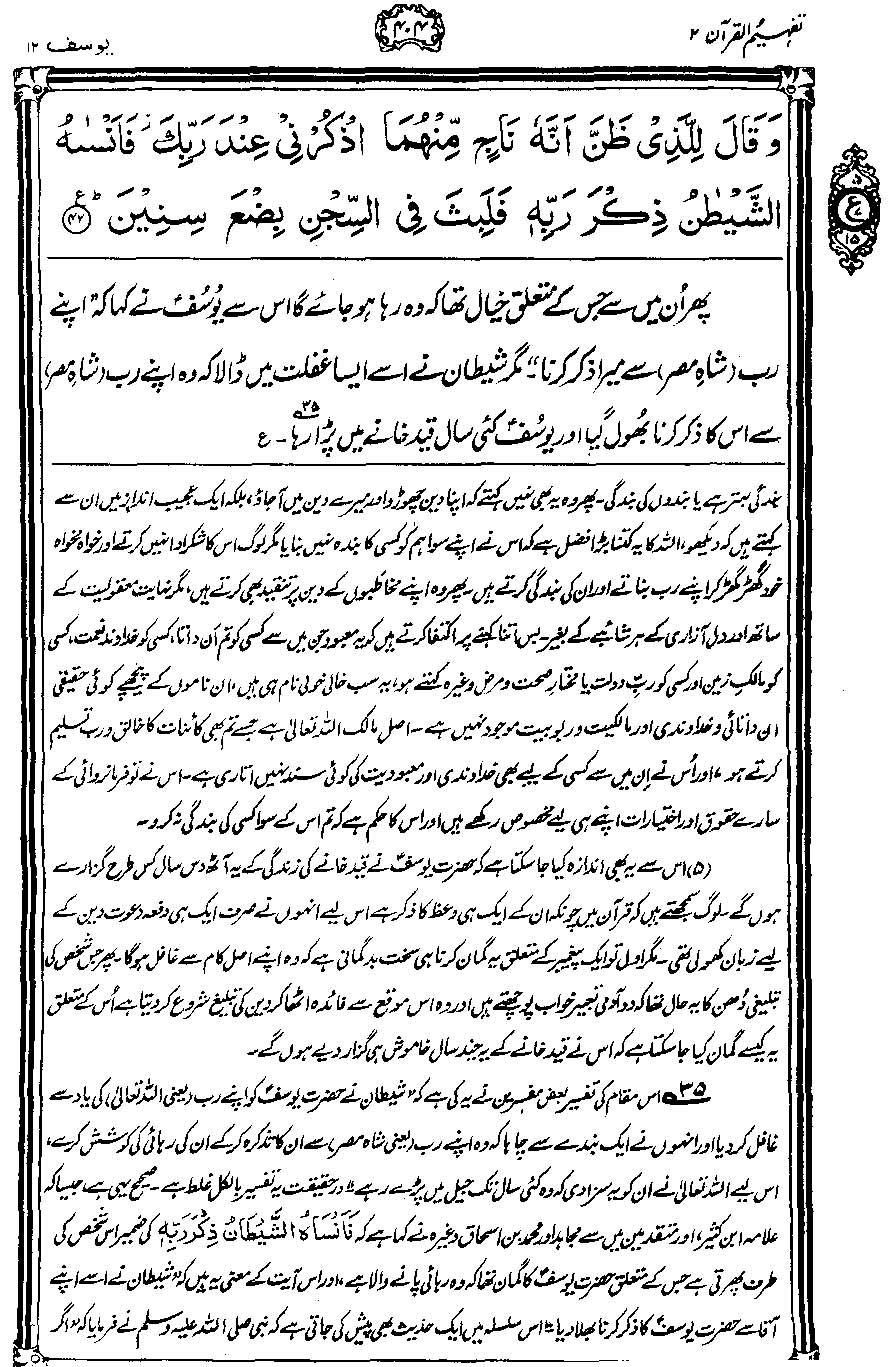 تفہیم القرآن ۲
۴۰۴
یوسف ۱۲
وَقَالَ لِلَّذِىۡ ظَنَّ اَنَّهٗ نَاجٍ مِّنۡهُمَا اذۡكُرۡنِىۡ عِنۡدَ رَبِّكَ ۫ فَاَنۡسٰٮهُ
الشَّيۡطٰنُ ذِكۡرَ رَبِّهٖ فَلَبِثَ فِى السِّجۡنِ بِضۡعَ سِنِيۡنَ ؕ ع ﴿۴۲﴾
۵
ع
۱۵
پھر اُن میں سے جس کے متعلق خیال تھا کہ وہ رہا ہو جائے گا اس سے یُوسُفؑ نے کہا کہ "اپنے
رب (شاہِ مصر) سے میرا ذکر کرنا"۔ مگر شیطان نے اسے ایسا غفلت میں ڈالا کہ وہ اپنے رب (شاہِ مصر)
سے اس کا ذکر کرنا بھُول گیا اور یوسُفؑ کئی سال قید خانے میں پڑا رہا۳۵۔ ع
بندگی بہتر ہے یا بندوں کی بندگی۔ پھر وہ یہ بھی نہیں کہتے کہ اپنا دین چھوڑو اور میرے دین میں آجاؤ، بلکہ ایک عجیب انداز میں ان سے
کہتے ہیں کہ دیکھو، اللہ کا یہ کتنا بڑا فضل ہے کہ اس نے اپنے سوا ہم کو کسی کا بندہ نہیں بنایا مگر لوگ اس کا شکر ادا نہیں کرتے اور خواہ مخواہ
خود گھڑ گھڑ کر اپنے رب بناتے اور ان کی بندگی کرتے ہیں۔ پھر وہ اپنے مخاطبوں کے دین پر تنقید بھی کرتے ہیں، مگر نہایت معقولیت کے
ساتھ اور دل آزاری کے ہر شائبے کے بغیر۔ بس اتنا کہنے پر اکتفا کرتے ہیں کہ یہ معبود جن میں سے کسی کو تم اَن داتا، کسی کو خداوندِ نعمت، کسی
کو مالکِ زمین اور کسی کو ربِّ دولت یا مختارِ صحت و مرض وغیرہ کہتے ہو، یہ سب خالی خولی نام ہی ہیں، ان ناموں کے پیچھے کوئی حقیقی
ان داتائی و خداوندی اور مالکیت و ربوبیت موجود نہیں ہے۔ اصل مالک اللہ تعالیٰ ہے جسے تم بھی کائنات کا خالق و رب تسلیم
کرتے ہو، اور اُس نے اِن میں سے کسی کے لیے بھی خداوندی اور معبودیت کی کوئی سند نہیں اتاری ہے۔ اس نے تو فرمانروائی کے
سارے حقوق اور اختیارات اپنے ہی لیے مخصوص رکھے ہیں اور اس کا حکم ہے کہ تم اس کے سوا کسی کی بندگی نہ کرو۔
(۵) اس سے یہ بھی اندازہ کیا جا سکتا ہے کہ حضرت یوسفؑ نے قید خانے کی زندگی کے یہ آٹھ دس سال کس طرح گزارے
ہوں گے۔ لوگ سمجھتے ہیں کہ قرآن میں چونکہ ان کے ایک ہی وعظ کا ذکر ہے اس لیے انہوں نے صرف ایک ہی دفعہ دعوت دین کے
لیے زبان کھولی تھی۔ مگر اول تو ایک پیغمبر کے متعلق یہ گمان کرنا ہی سخت بدگمانی ہے کہ وہ اپنے اصل کام سے غافل ہوگا۔ پھر جس شخص کی
تبلیغی دُھن کا یہ حال تھا کہ دو آدمی تعبیرِ خواب پوچھتے ہیں اور وہ اس موقع سے فائدہ اٹھا کر دین کی تبلیغ شروع کر دیتا ہے اُس کے متعلق
یہ کیسے گمان کیا جا سکتا ہے کہ اس نے قید خانے کے یہ چند سال خاموش ہی گزار دیے ہوں گے۔
۳۵ اس مقام کی تفسیر بعض مفسرین نے یہ کی ہے کہ "شیطان نے حضرت یوسفؑ کو اپنے رب (یعنی اللہ تعالیٰ) کی یاد سے
غافل کر دیا اور انہوں نے ایک بندے سے چاہا کہ وہ اپنے رب (یعنی شاہ مصر) سے ان کا تذکرہ کر کے ان کی رہائی کی کوشش کرے،
اس لیے اللہ تعالیٰ نے ان کو یہ سزا دی کہ وہ کئی سال تک جیل میں پڑے رہے"۔ درحقیقت یہ تفسیر بالکل غلط ہے۔ صحیح یہی ہے، جیسا کہ
علامہ ابن کثیر، اور متقدمین میں سے مجاہد اور محمد بن اسحاق وغیرہ نے کہا ہے کہ فَأَنْسَاهُ الشَّيْطَانُ ذِكْرَ رَبِّهٖ کی ضمیر اس شخص کی
طرف پھرتی ہے جس کے متعلق حضرت یوسفؑ کا گمان تھا کہ وہ رہائی پانے والا ہے، اور اس آیت کے معنی یہ ہیں کہ "شیطان نے اسے اپنے
آقا سے حضرت یوسفؑ کا ذکر کرنا بھلا دیا"۔ اس سلسلہ میں ایک حدیث بھی پیش کی جاتی ہے کہ نبی صلی اللہ علیہ وسلم نے فرمایا کہ "اگر